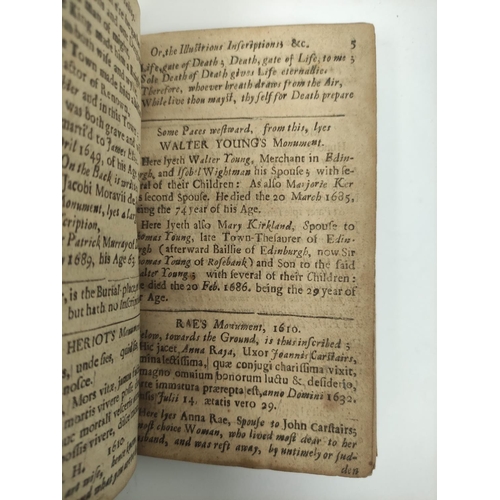 of Death
Town made this
both wife and
astor of Renow
hter and in this Town
was both grave and
marri'd to James
April 1649, of his Age
On the Back is written
Jacobi Moravii de
Monument, lyes a
scription,
Patrick Murray of
1689, his Age 63
, is the Burial-place
but hath no Inscrip
HERIOT'S Monum
, unde sies, quid
nosce.
Mors vitæ, janua
mortis vivere
æ mortali
possis vivere, disce
1610.
H.
Or, the Illustrious Inscriptions &c. 5
Life, gate of Death; Death, gate of Life, to me;
Sole Death of Death gives Life eternallie:
Therefore, whoever breath draws from the Air,
While live thou mayst, thy self for Death prepare
Some Paces westward, from this, lyes
WALTER YOUNG'S Monument.
Here lyeth Walter Young, Merchant in Edin-
burgh, and Isobel Wightman his Spouse; with se-
veral of their Children: As also Marjorie Ker
s second Spouse. He died the 20 March 1685,
eing the 74 year of his Age.
Here lyeth also Mary Kirkland, Spouse to
homas Young, late Town-Thesaurer of Edin-
gh (afterward Baillie of Edinburgh, now Sir
homas Young of Rosebank) and Son to the said
alter Young; with several of their Children:
e died the 20 Feb. 1686. being the 29 year of
r Age.
RAE'S Monument, 1610.
elow, towards the Ground, is thus inscribed;
Hic jacet Anna Raya, Uxor Joannis Carstairs,
minalectissima, quæ conjugi charissima vixit,
magno omnium bonorum luctu & desiderio,
rte immatura præreptaest, anno Domini 1632,
ensis Julii 14. ætatis vero 29.
Here lyes Anna Rae, Spouse to John Carstairs;
most choice Woman, who lived most dear to her
husband, and was reft away, by untimely or sud-
den